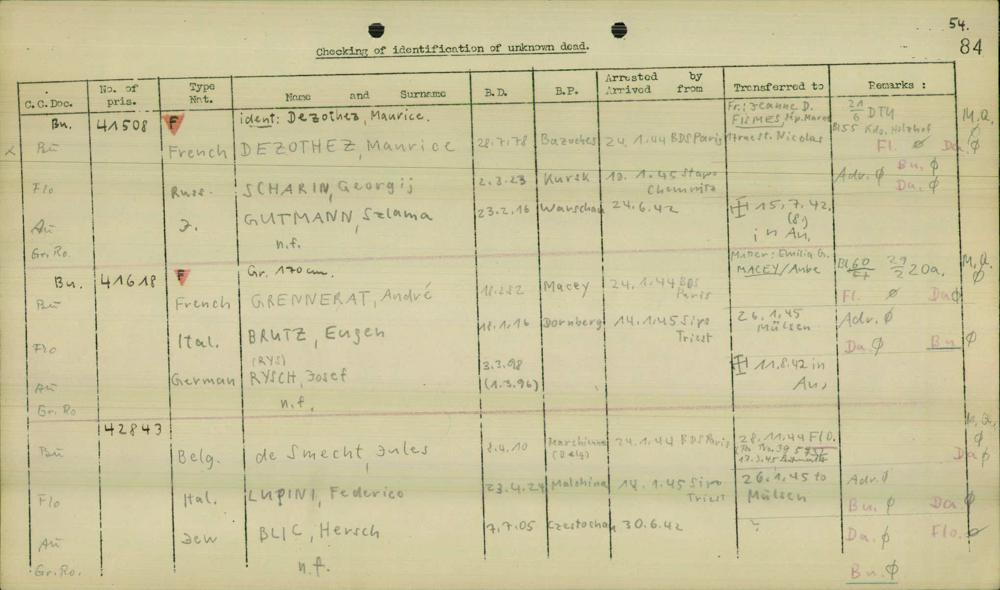 54.
84
Checking of identification of unknown dead.
C.C.Doc. No. of pris. Type Nat. Name and Surname B.D. B.P. Arrested by Arrived from Transferred to Remarks :
Bu. 41508 F ident: Dezothez, Maurice. Fr.: Jeanne D. FISMES, 21/6 DTU M,Q, ø
Bu French DEZOTHEZ, Maurice 28.7.78 Bazoches 24.1.44 BDS Paris St. Nicolas Fl. ø Da ø
Bu. ø
Flo Russ. SCHARIN, Georgij 2.3.23 Kursk 13.1.45 Stapo Chemnitz Adv. ø Da. ø
Au J. GUTMANN, Szlama 23.2.16 Warschau 24.6.42 15,7.42, (8) in Au,
Gr.Ro. n.f.
Bu. 41618 F Gr. 170 cm. Mutter: Emilia G. MACEY/Aube 29/2 20a. M,Q, ø
Bu French GRENNERAT, André Macey 24.1.44 BDS Paris Fl. ø Da ø
Flo Ital. BRUTZ, Eugen 18.1.16 Dornberg 14.1.45 Sipo Triest 26.1.45 Mülsen Adv. ø
Da. ø Bu ø
Au German (RYS) RYSCH, Josef 3.3.98 (1.3.96) 11.8.42 in Au,
Gr.Ro n.f.
42843 M,Q, ø
Bu Belg. de Smecht, Jules 8.4.10 24.1.44 BDS Paris 28.11.44 Flo. Da ø
17.3.45
Flo Ital. LUPINI, Federico 23.4.24 Malchina 14.1.45 Sipo Triest 26.1.45 to Mülsen Adv. ø
Bu. ø Da. ø
Au Jew BLIC, Hersch 7.7.05 Czestochau 30.6.42 Da. ø Flo. ø
Gr.Ro. n.f. Bu. ø